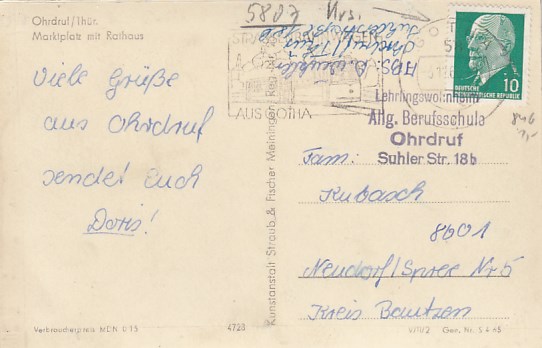 Ohrdruf/Thür.
Marktplatz mit Rathaus
Viele Grüße
aus Ohrdruf
sendet Euch
Doris!
Verbraucherpreis MDN 0,15
4728
Kunstanstalt Straub & Fischer Meiningen
5807
AUS GOTHA
DEUTSCHE
DEMOKRATISCHE REPUBLIK
10
Lehrlingswohnheim
Allg. Berufsschule
Ohrdruf
Suhler Str. 18b
Fam:
Kubasch
8601
Neudorf/Spree Nr 5
Kreis Bautzen
V/11/2 Gen. Nr. S 4/65